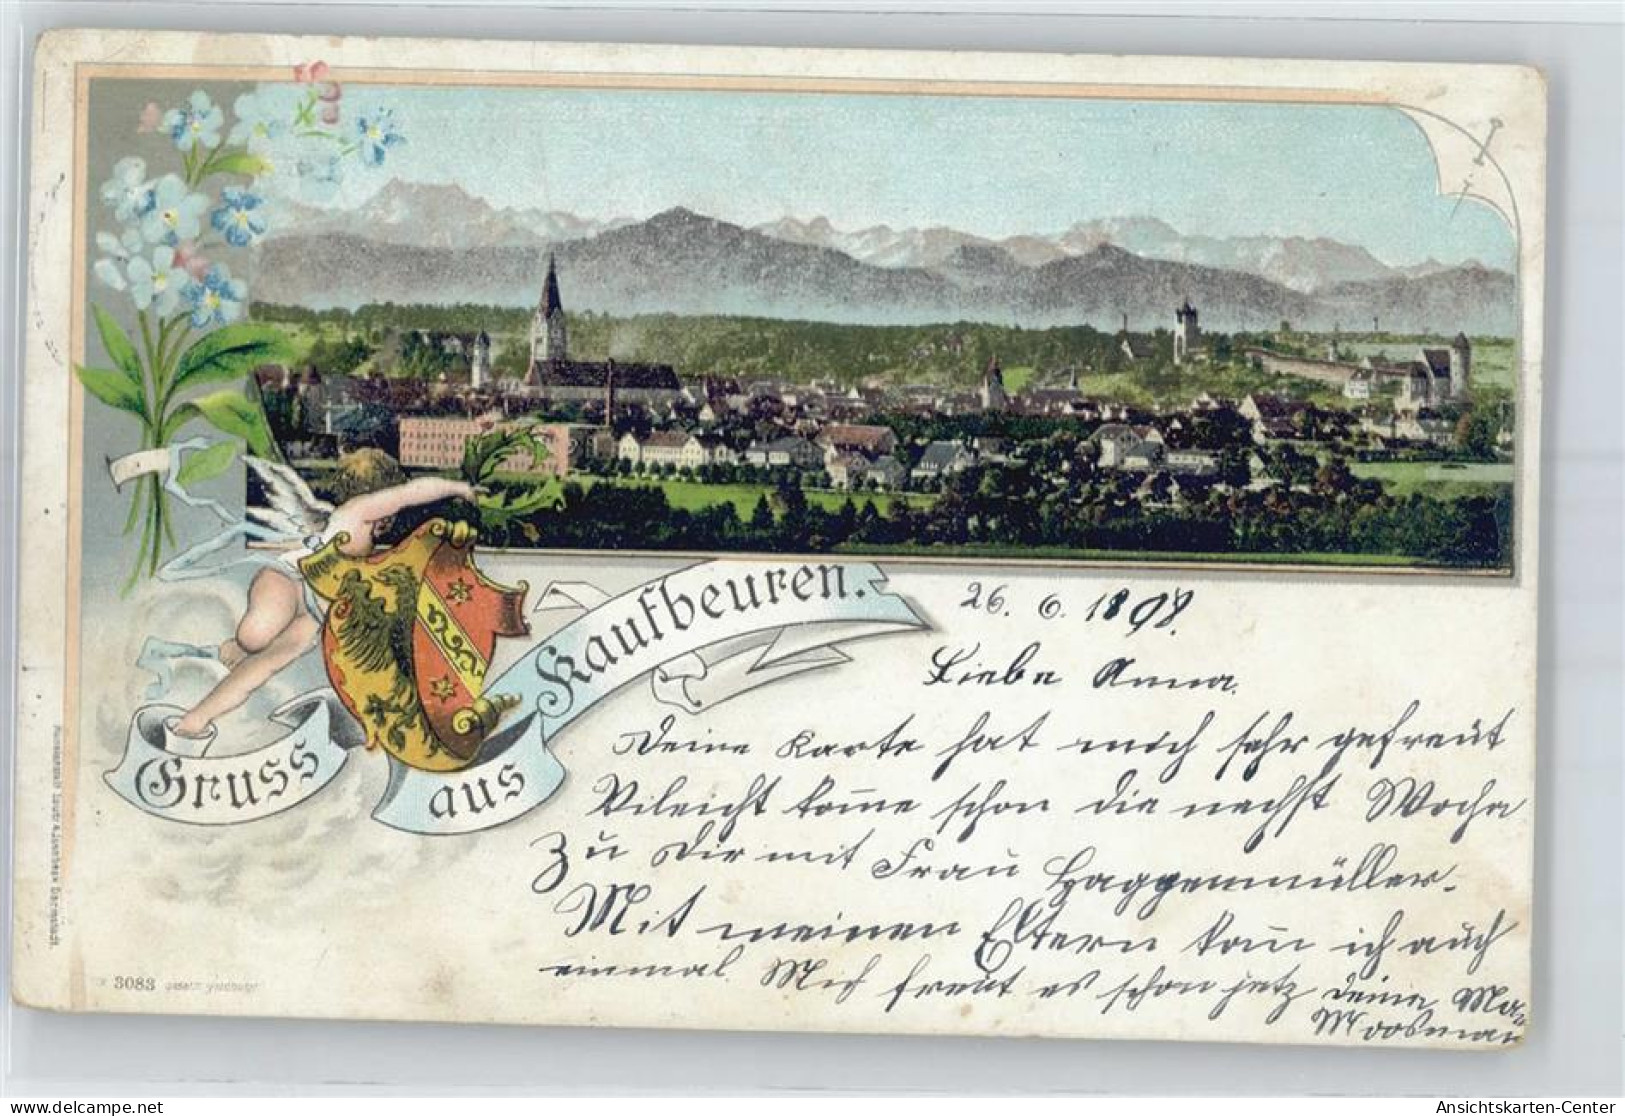 Gruss aus Kaufbeuren.
26. 6. 1898.
Liebe Anna.
Deine Karte hat mich sehr gefreut
Vileicht kome schon die nechst Woche
Zu Dir mit Frau Haggenmüller.
Mit meinen Eltern kom ich auch
einmal. Mich freut es schon jetz Deine
Moosman
3083
Ansichtskarten-Center